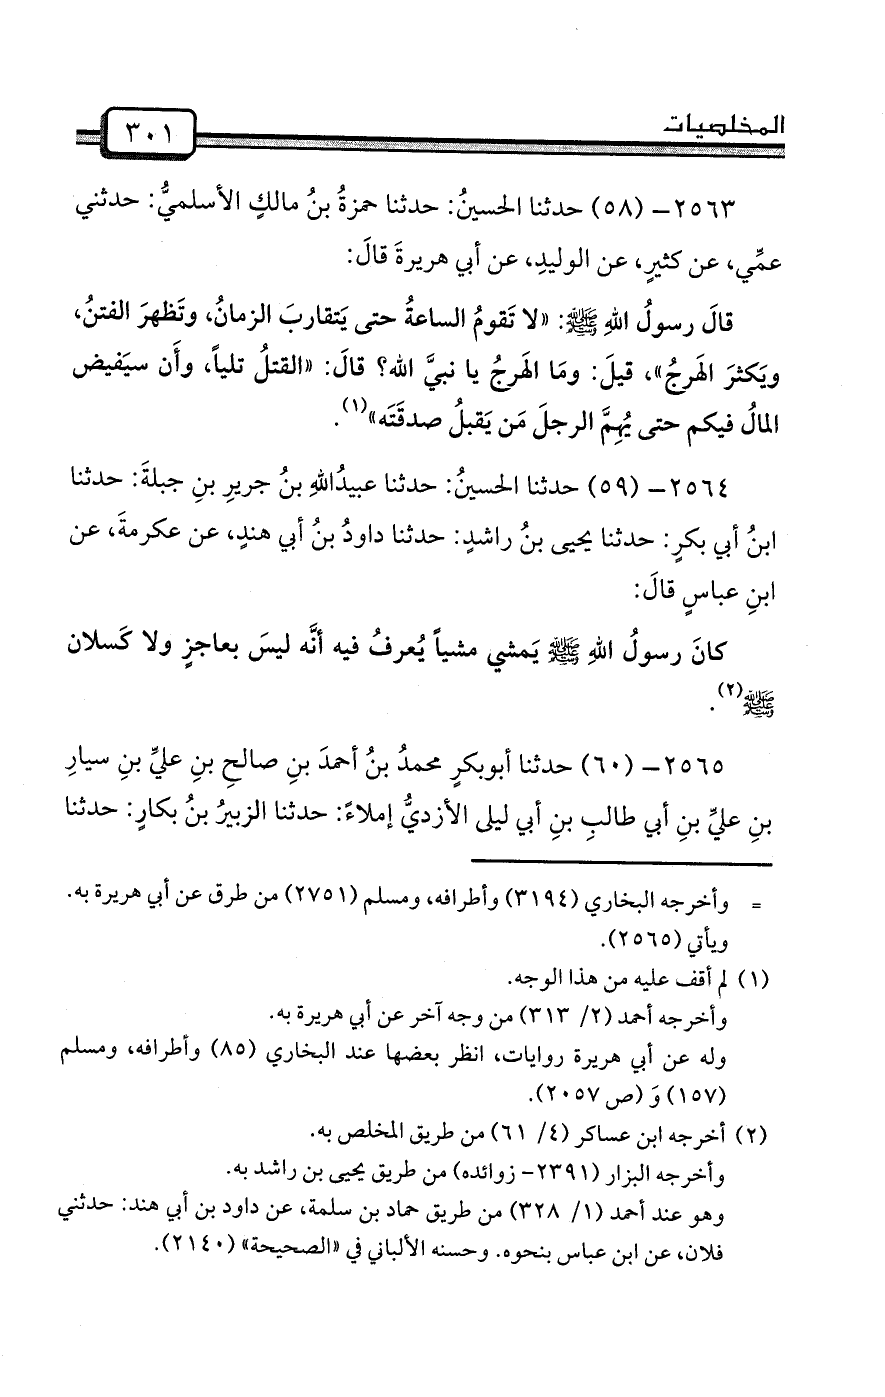 المخلصيات
٣٠١
٢٥٦٣- (٥٨) حدثنا الحسينُ: حدثنا حمزةُ بنُ مالكٍ الأسلميُّ: حدثني
عمِّي، عن كثيرٍ، عن الوليدِ، عن أبي هريرةَ قالَ:
قالَ رسولُ اللهِ ﷺ: «لا تَقومُ الساعةُ حتى يَتقاربَ الزمانُ، وتَظهرَ الفتنُ،
ويَكثرَ الهَرجُ»، قيلَ: ومَا الهَرجُ يا نبيَّ الله؟ قالَ: «القتلُ تلياً، وأَن سيَفيض
المالُ فيكم حتى يُهِمَّ الرجلَ مَن يَقبلُ صدقَتَه»(١).
٢٥٦٤- (٥٩) حدثنا الحسينُ: حدثنا عبيدُاللهِ بنُ جريرِ بنِ جبلةَ: حدثنا
ابنُ أبي بكرٍ: حدثنا يحيى بنُ راشدٍ: حدثنا داودُ بنُ أبي هندٍ، عن عكرمةَ، عن
ابنِ عباسٍ قالَ:
كانَ رسولُ اللهِ ﷺ يَمشي مشياً يُعرفُ فيه أنَّه ليسَ بعاجزٍ ولا كَسلان
ﷺ(٢).
٢٥٦٥- (٦٠) حدثنا أبوبكرٍ محمدُ بنُ أحمدَ بنِ صالحِ بنِ عليِّ بنِ سيارِ
بنِ عليِّ بنِ أبي طالبِ بنِ أبي ليلى الأزديُّ إملاءً: حدثنا الزبيرُ بنُ بكارٍ: حدثنا
= وأخرجه البخاري (٣١٩٤) وأطرافه، ومسلم (٢٧٥١) من طرق عن أبي هريرة به.
ويأتي (٢٥٦٥).
(١) لم أقف عليه من هذا الوجه.
وأخرجه أحمد (٢/ ٣١٣) من وجه آخر عن أبي هريرة به.
وله عن أبي هريرة روايات، انظر بعضها عند البخاري (٨٥) وأطرافه، ومسلم
(١٥٧) وَ (ص ٢٠٥٧).
(٢) أخرجه ابن عساكر (٤/ ٦١) من طريق المخلص به.
وأخرجه البزار (٢٣٩١- زوائده) من طريق يحيى بن راشد به.
وهو عند أحمد (١/ ٣٢٨) من طريق حماد بن سلمة، عن داود بن أبي هند: حدثني
فلان، عن ابن عباس بنحوه. وحسنه الألباني في «الصحيحة» (٢١٤٠).